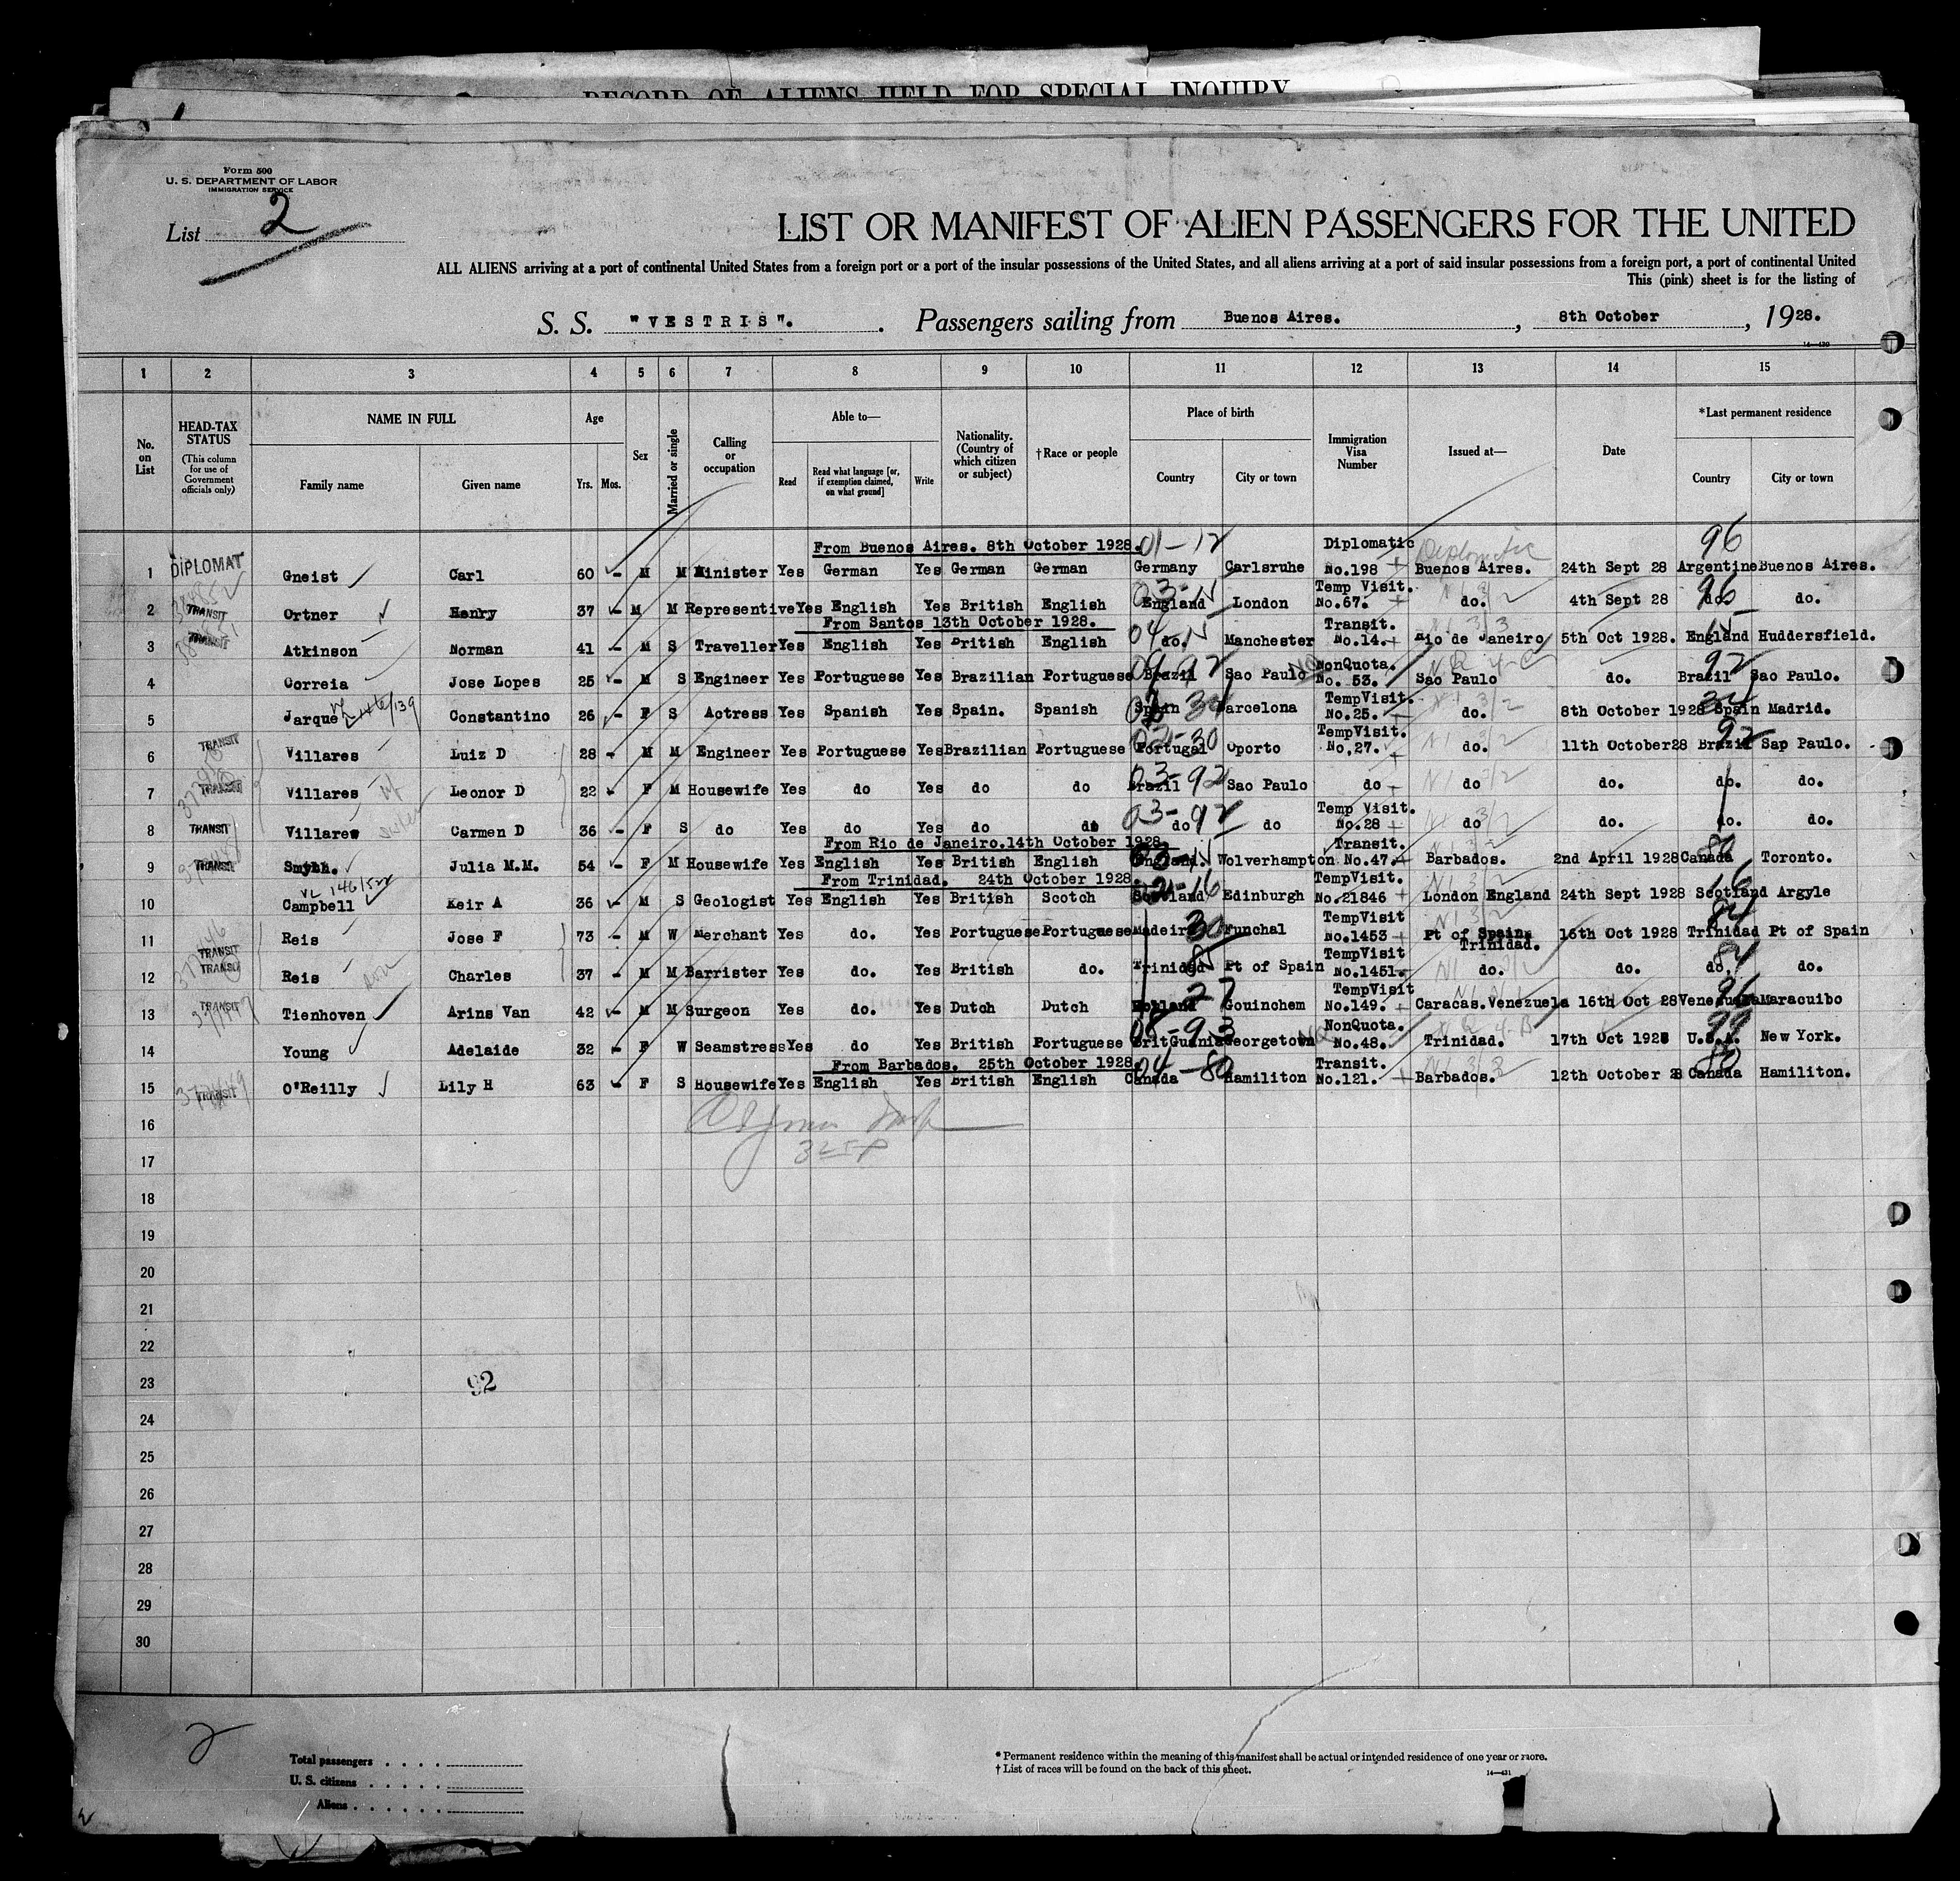 RECORD OF ALIENS HELD FOR SPECIAL INQUIRY
Form 500
U. S. DEPARTMENT OF LABOR
IMMIGRATION SERVICE
List 2
LIST OR MANIFEST OF ALIEN PASSENGERS FOR THE UNITED
ALL ALIENS arriving at a port of continental United States from a foreign port or a port of the insular possessions of the United States, and all aliens arriving at a port of said insular possessions from a foreign port, a port of continental United
This (pink) sheet is for the listing of
S. S. "VESTRIS". Passengers sailing from Buenos Aires. , 8th October , 1928.
14—430
1 2 3 4 5 6 7 8 9 10 11 12 13 14 15
No. on List
HEAD-TAX STATUS (This column for use of Government officials only)
NAME IN FULL
Family name Given name
Age
Yrs. Mos.
Sex
Married or single
Calling or occupation
Able to—
Read Read what language [or, if exemption claimed, on what ground] Write
Nationality. (Country of which citizen or subject)
†Race or people
Place of birth
Country City or town
Immigration Visa Number
Issued at—
Date
*Last permanent residence
Country City or town
From Buenos Aires. 8th October 1928. 01-12 Diplomatic Diplomatic 96
1 DIPLOMAT Gneist Carl 60 - M M Minister Yes German Yes German German Germany Carlsruhe No.198 Buenos Aires. 24th Sept 28 Argentine Buenos Aires.
2 TRANSIT Ortner Henry 37 - M M Representive Yes English Yes British English England London Temp Visit. No.67. do. 4th Sept 28 do. 96 do.
From Santos 13th October 1928.
3 TRANSIT Atkinson Norman 41 - M S Traveller Yes English Yes British English do. Manchester Transit. No.14. Rio de Janeiro 5th Oct 1928. England Huddersfield.
4 Correia Jose Lopes 25 - M S Engineer Yes Portuguese Yes Brazilian Portuguese Brazil Sao Paulo NonQuota. No. 53. Sao Paulo do. Brazil 92 Sao Paulo.
5 Jarque Constantino 26 - F S Actress Yes Spanish Yes Spain. Spanish Spain Barcelona TempVisit. No.25. do. 8th October 1928 Spain Madrid.
6 TRANSIT Villares Luiz D 28 - M M Engineer Yes Portuguese Yes Brazilian Portuguese Portugal Oporto TempVisit. No.27. do. 11th October28 Brazil 92 Sap Paulo.
7 TRANSIT Villares Leonor D 22 - F M Housewife Yes do Yes do do Brazil 03-92 Sao Paulo do do do. do. do.
8 TRANSIT Villares Carmen D 36 - F S do Yes do Yes do do do 03-92 do Temp Visit. No.28 do do. do. do.
From Rio de Janeiro.14th October 1928.
9 TRANSIT Smyhh. Julia M.M. 54 - F M Housewife Yes English Yes British English England. Wolverhampton Transit. No.47. Barbados. 2nd April 1928 Canada Toronto.
From Trinidad. 24th October 1928.
10 Campbell Keir A 36 - M S Geologist Yes English Yes British Scotch Scotland Edinburgh TempVisit. No.21846 London England 24th Sept 1928 Scotland Argyle
11 TRANSIT Reis Jose F 73 - M W Merchant Yes do. Yes Portuguese Portuguese Madeira 30 Funchal TempVisit No.1453 Pt of Spain Trinidad. 16th Oct 1928 Trinidad 84 Pt of Spain
12 TRANSIT Reis Charles 37 - M M Barrister Yes do. Yes British do. Trinidad Pt of Spain TempVisit No.1451. do. do. do. 84 do.
13 TRANSIT Tienhoven Arins Van 42 - M M Surgeon Yes do. Yes Dutch Dutch Holland 27 Gouinchem TempVisit No.149. Caracas.Venezuela 16th Oct 28 Venezuela 96 Maracuibo
14 Young Adelaide 32 - F W Seamstress Yes do Yes British Portuguese BritGuinia 08-93 Georgetown NonQuota. No.48. Trinidad. 17th Oct 1928 U.S.A. 99 New York.
From Barbados. 25th October 1928.
15 TRANSIT O'Reilly Lily H 63 - F S Housewife Yes English Yes British English Canada 04-80 Hamiliton Transit. No.121. Barbados. 12th October 28 Canada 80 Hamiliton.
16
17
18
19
20
21
22
23 92
24
25
26
27
28
29
30
2
Total passengers . . . .
U. S. citizens . . . . .
Aliens . . . . . .
* Permanent residence within the meaning of this manifest shall be actual or intended residence of one year or more.
† List of races will be found on the back of this sheet.
14—431